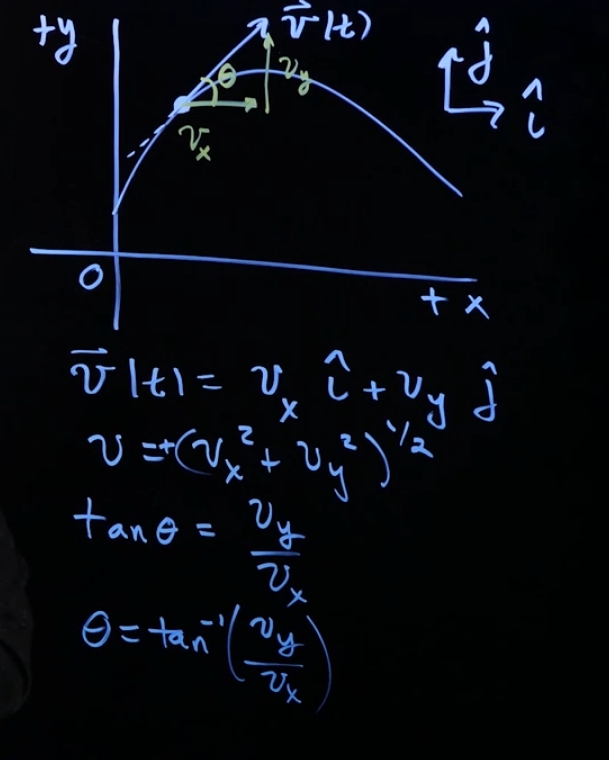 +y
v⃗(t)
θ
v_y
v_x
ĵ
î
0
+ x
v⃗(t) = v_x î + v_y ĵ
v = +(v_x² + v_y²)^1/2
tan θ = v_y / v_x
θ = tan⁻¹(v_y / v_x)